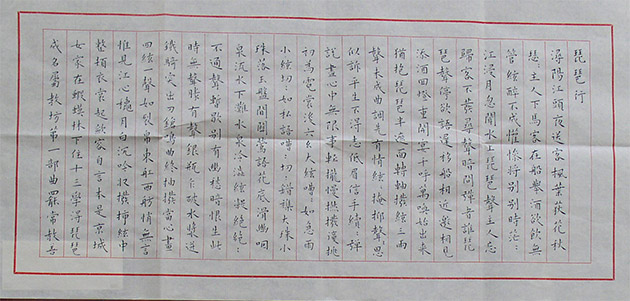 琵琶行
潯陽江頭夜送客楓葉荻花秋
瑟主人下馬客在船舉酒欲飲無
管絃醉不成懽慘將別別時茫ː
江浸月忽聞水上琵琶聲主人忘
歸客不發尋聲暗問彈者誰琵
琶聲停欲語遲移船相近邀相見
添酒回燈重開宴千呼萬喚始出來
猶抱琵琶半遮面轉軸撥絃三兩
聲未成曲調先有情絃ː掩抑聲思
似訴平生不得志低眉信手續ː彈
說盡心中無限事輕攏慢撚撥復挑
初爲霓裳後六幺大絃嘈ː如急雨
小絃切ː如私語嘈ː切ː錯雜大珠小
珠落玉盤間關鶯語花底滑幽咽
泉流水下灘水泉冷澀絃凝絕ː
不通聲暫歇別有幽愁暗恨生此
時無聲勝有聲銀瓶乍破水漿迸
鐵騎突出刀鎗鳴曲終抽撥當心畫
四絃一聲如裂帛東舡西舫悄無言
惟見江心秋月白沉吟收撥插絃中
整頓衣裳起斂容自言本是京城
女家在蝦蟆林下住十三學得琵琶
成名屬教坊第一部曲罷嘗教善